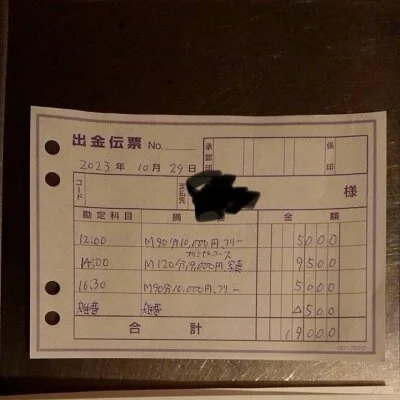 出金伝票 No.
承認印 係印
2023年 10月 29日
コード 支払先 様
勘定科目 摘 金額
12:00 M90分10,000円、フリー 5000
14:00 M120分19,000円、写真 9500
16:30 M90分10,000円、フリー 5000
雑費 雑費 △500
合計 19000